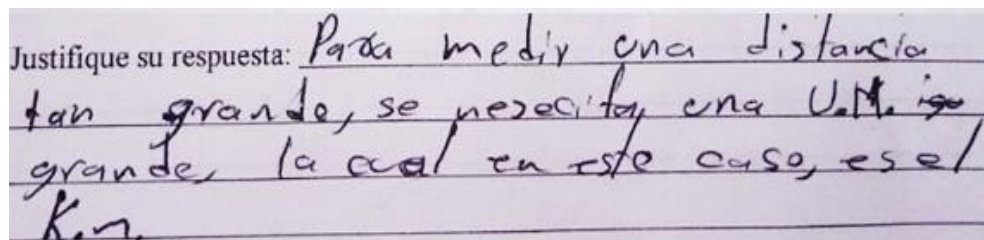 Justifique su respuesta: Para medir una distancia
tan grande, se nesecita, una U.M.
grande, la cual en este caso, es el
K.m.